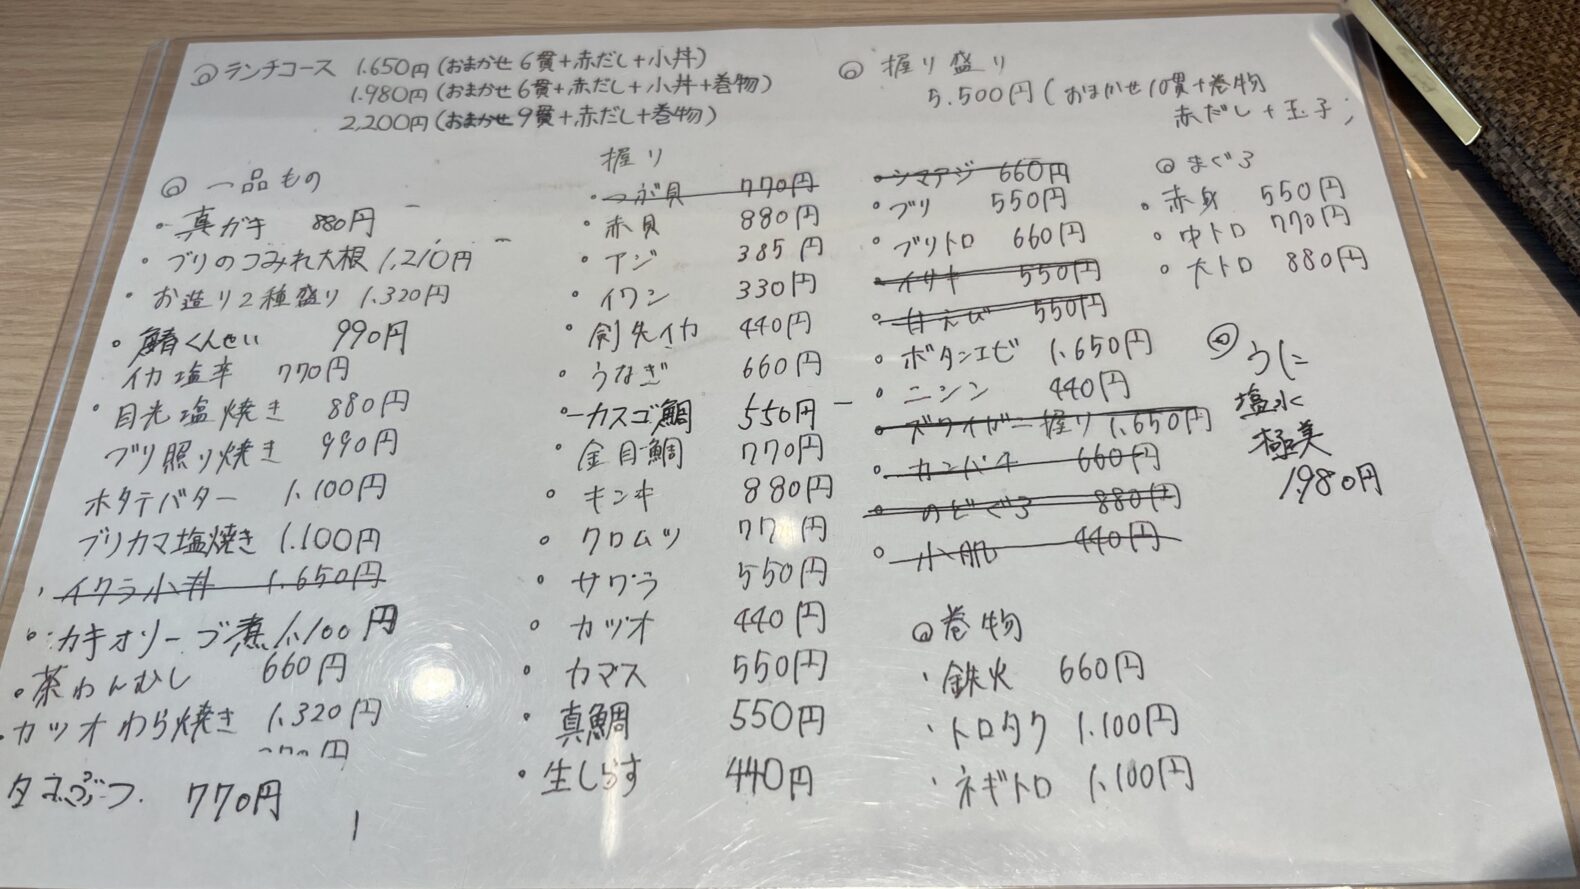 ◎ ランチコース 1.650円(おまかせ6貫+赤だし+小丼)
1.980円(おまかせ6貫+赤だし+小丼+巻物)
2,200円(おまかせ9貫+赤だし+巻物)
◎ 握り盛り
5.500円(おまかせ10貫+巻物
赤だし+玉子)
◎ 一品もの
・真ガキ 880円
・ブリのつみれ大根 1,210円
・お造り2種盛り 1.320円
・鯖くんせい 990円
イカ塩辛 770円
・目光塩焼き 880円
ブリ照り焼き 990円
ホタテバター 1.100円
ブリカマ塩焼き 1.100円
・イクラ小丼 1.650円
・カキオソーブ煮 1.100円
・茶わんむし 660円
・カツオわら焼き 1.320円
タコぶつ 770円
握り
・つぶ貝 770円
・赤貝 880円
・アジ 385円
・イワシ 330円
・剣先イカ 440円
・うなぎ 660円
・カスゴ鯛 550円
・金目鯛 770円
・キンキ 880円
・クロムツ 770円
・サワラ 550円
・カツオ 440円
・カマス 550円
・真鯛 550円
・生しらす 440円
・シマアジ 660円
・ブリ 550円
・ブリトロ 660円
・イサキ 550円
・甘えび 550円
・ボタンエビ 1.650円
・ニシン 440円
・ズワイガニ握り 1.650円
・カンパチ 660円
・のどぐろ 880円
・小肌 440円
◎ 巻物
・鉄火 660円
・トロタク 1.100円
・ネギトロ 1.100円
◎ まぐろ
・赤身 550円
・中トロ 770円
・大トロ 880円
◎ うに
塩水
極美
1.980円